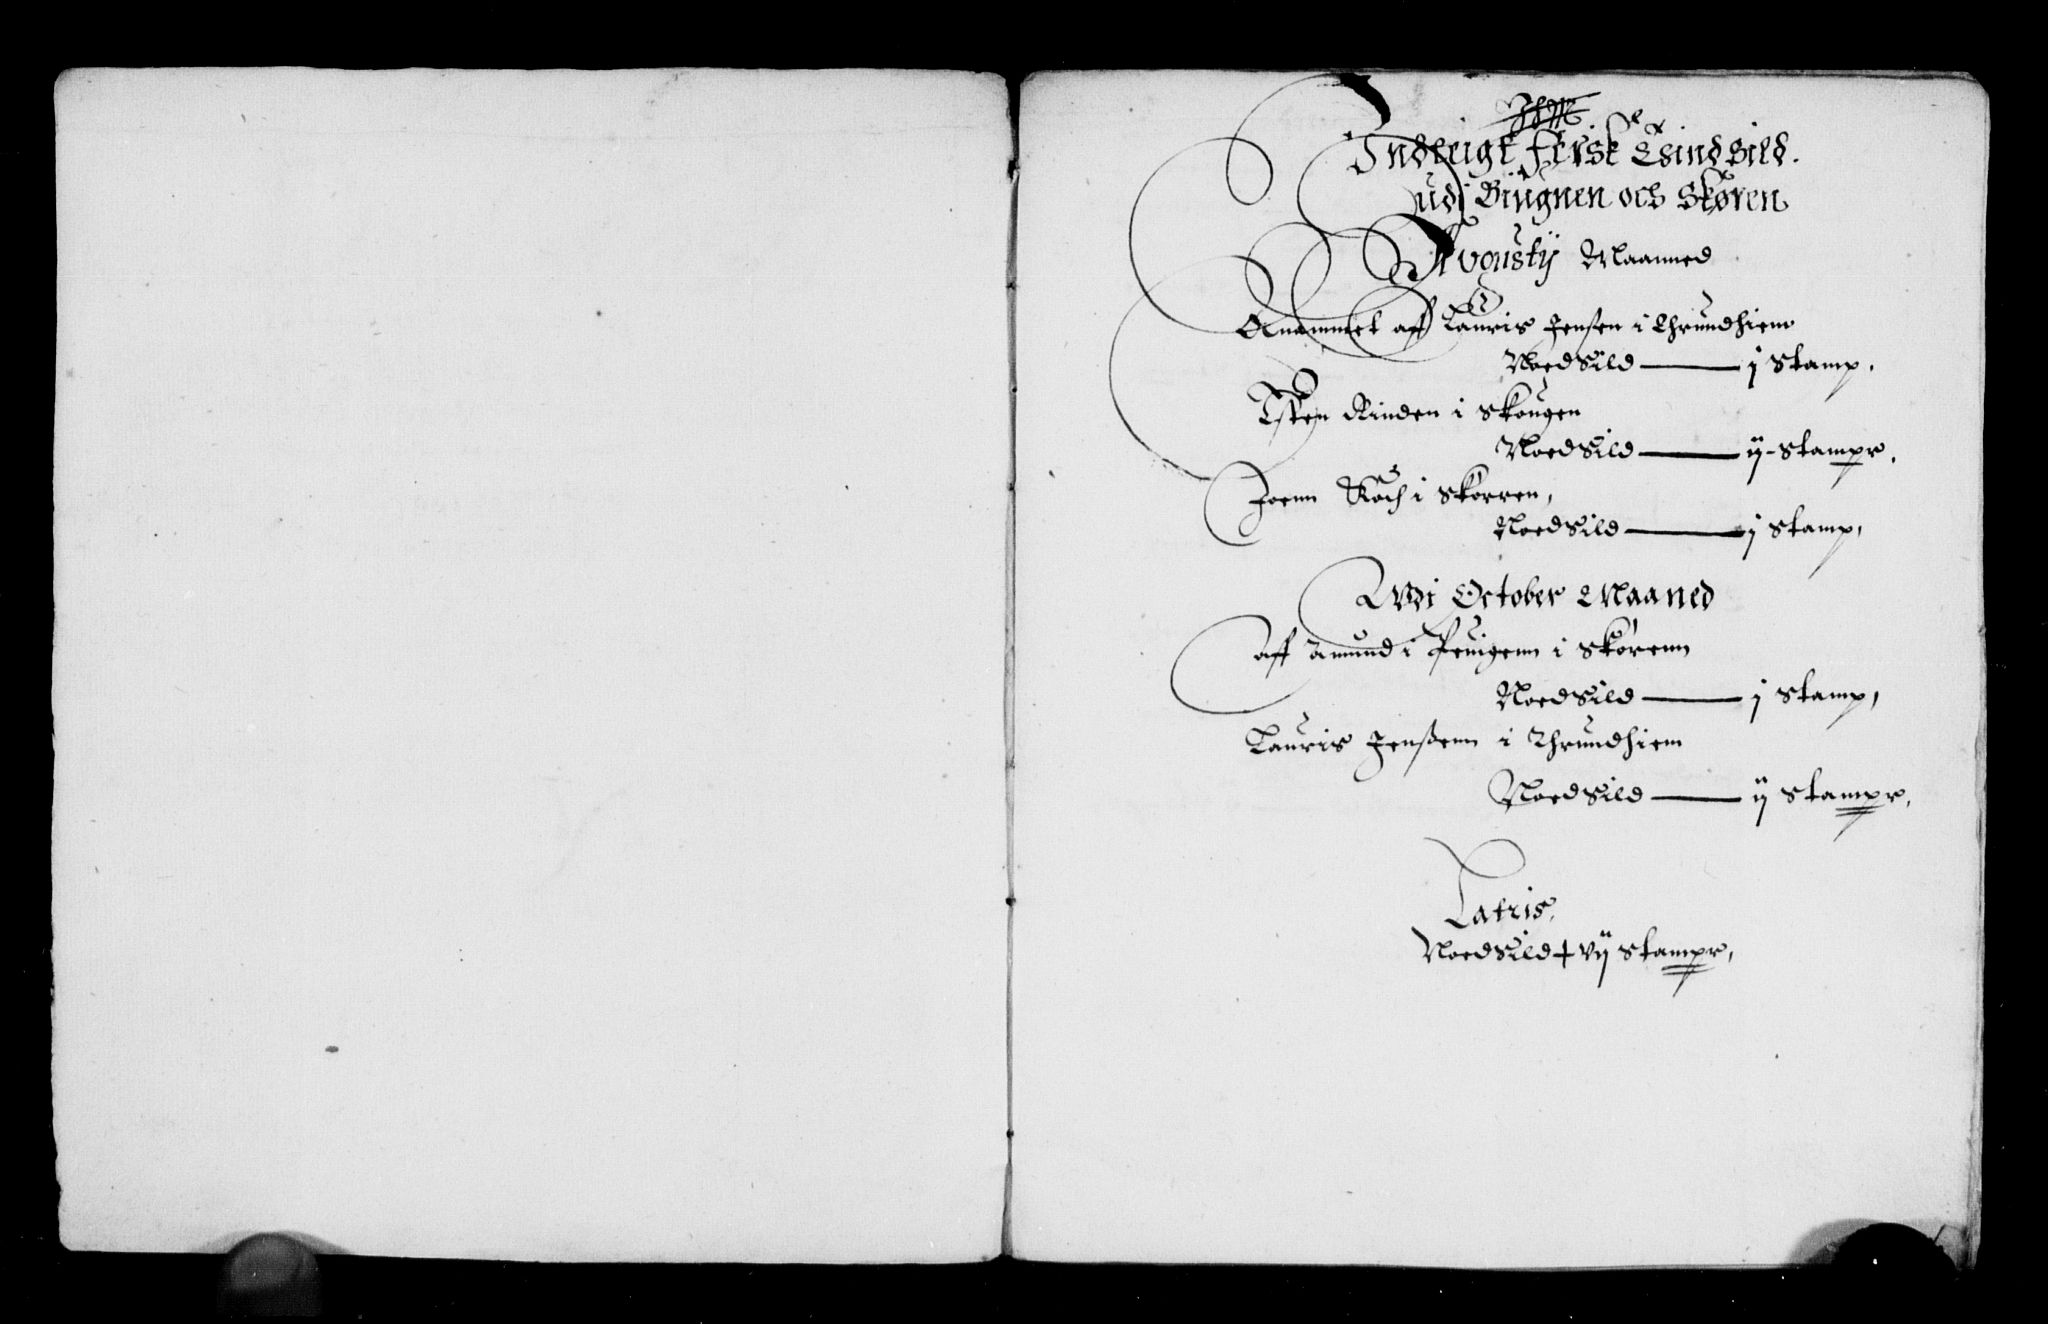 Indteigt fersk Tsind Sild.
udj Biugnen och Skøren
Avgustij Maanned
Anammet aff Lauris Jensen i Thrundhiem
Noed Sild — j Stamp,
Rinden i Skougen
Noed Sild — ij - Stampr,
Joenn Koch i Skørren,
Noed Sild — j Stamp,
Vdi October Maaned
aff Amund i i Skørenn
Noed Sild — j Stamp,
Lauris Jenssenn i Thrundhiem
Noed Sild — ij Stampr,
Latris.
Noed Sild + vij Stampr,